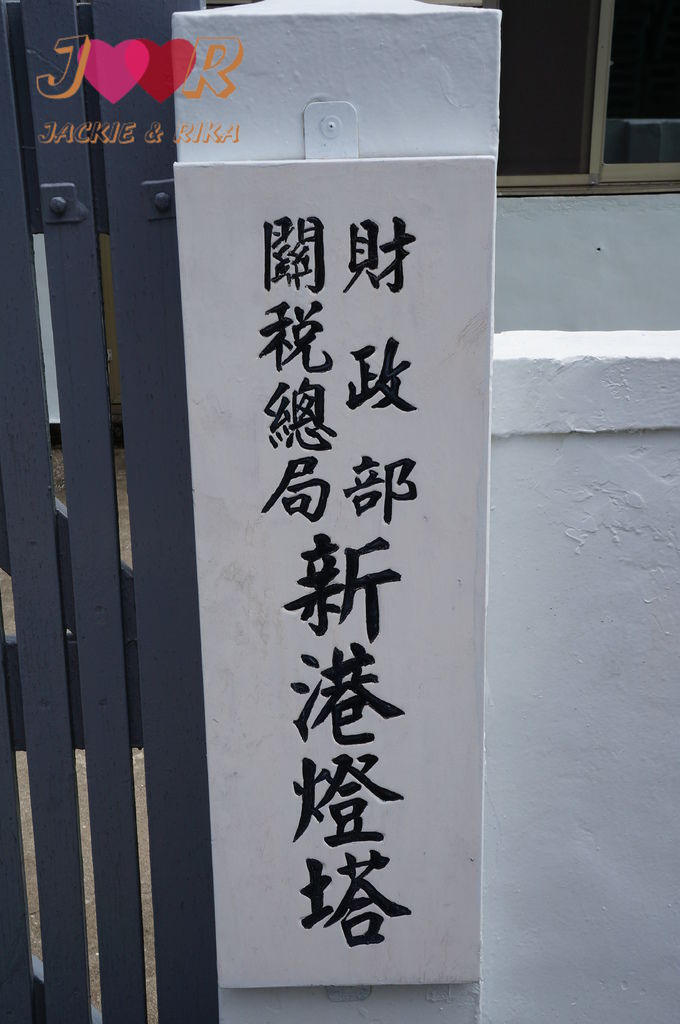 J R
JACKIE & RIKA
財政部
關稅總局
新港燈塔